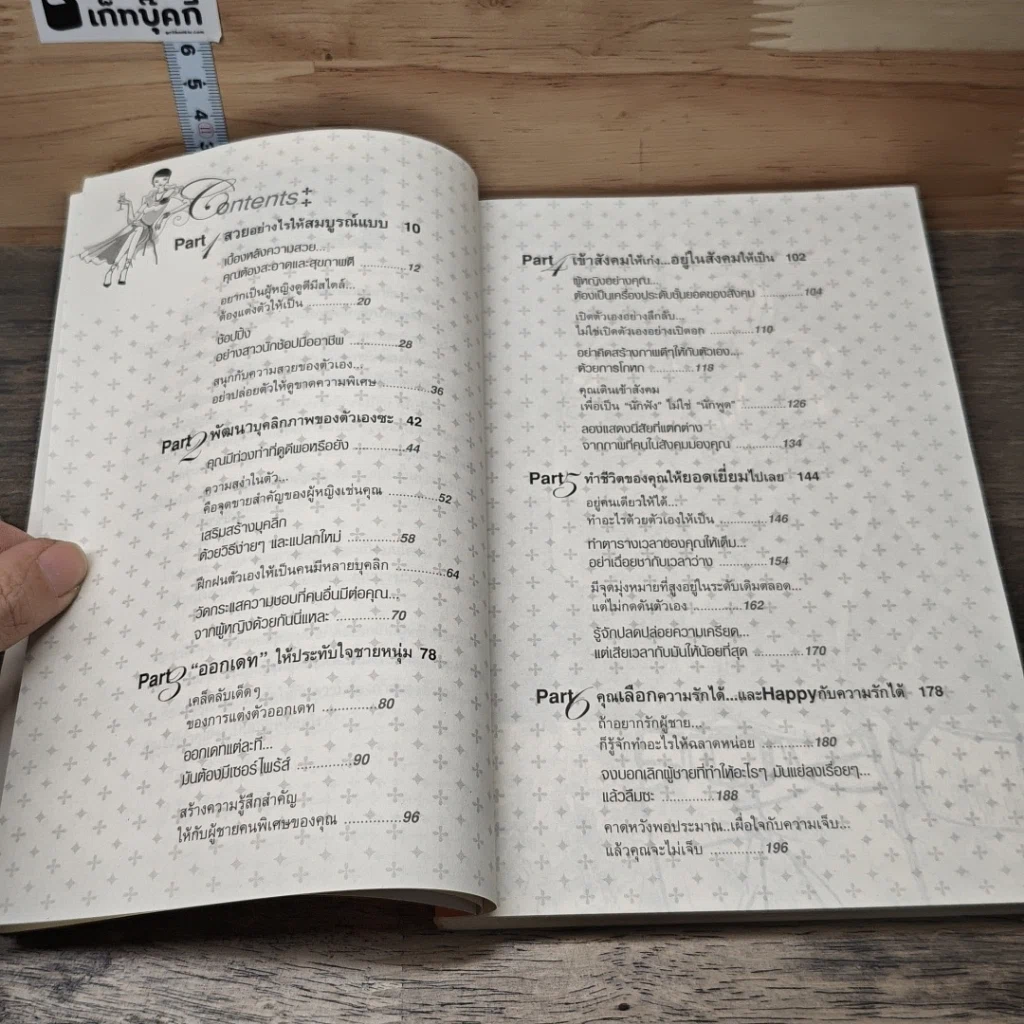 เก็ทบุ๊คกี้
6
5
4
3
Contents
Part 1 สวยอย่างไรให้สมบูรณ์แบบ 10
เบื้องหลังความสวย...
คุณต้องสะอาดและสุขภาพดี ............12
อยากเป็นผู้หญิงดูดีมีสไตล์...
ต้องแต่งตัวให้เป็น ............20
ช้อปปิ้ง
อย่างสาวนักช้อปมืออาชีพ ............28
สนุกกับความสวยของตัวเอง...
อย่าปล่อยตัวให้ดูขาดความพิเศษ ............36
Part 2 พัฒนาบุคลิกภาพของตัวเองซะ 42
คุณมีท่วงท่าที่ดูดีพอหรือยัง ............44
ความสง่าในตัว...
คือจุดขายสำคัญของผู้หญิงเช่นคุณ ............52
เสริมสร้างบุคลิก
ด้วยวิธีง่ายๆ และแปลกใหม่ ............58
ฝึกฝนตัวเองให้เป็นคนมีหลายบุคลิก ............64
วัดกระแสความชอบที่คนอื่นมีต่อคุณ...
จากผู้หญิงด้วยกันนี่แหละ ............70
Part 3 "ออกเดท" ให้ประทับใจชายหนุ่ม 78
เคล็ดลับเด็ดๆ
ของการแต่งตัวออกเดท ............80
ออกเดทแต่ละที...
มันต้องมีเซอร์ไพร้ส์ ............90
สร้างความรู้สึกสำคัญ
ให้กับผู้ชายคนพิเศษของคุณ ............96
Part 4 เข้าสังคมให้เก่ง...อยู่ในสังคมให้เป็น 102
ผู้หญิงอย่างคุณ...
ต้องเป็นเครื่องประดับชั้นยอดของสังคม ............104
เปิดตัวเองอย่างลึกลับ...
ไม่ใช่เปิดตัวเองอย่างเปิดอก ............110
อย่าคิดสร้างภาพดีๆให้กับตัวเอง...
ด้วยการโกหก ............118
คุณเดินเข้าสังคม
เพื่อเป็น "นักฟัง" ไม่ใช่ "นักพูด" ............126
ลองแสดงนิสัยที่แตกต่าง
จากภาพที่คนในสังคมมองคุณ ............134
Part 5 ทำชีวิตของคุณให้ยอดเยี่ยมไปเลย 144
อยู่คนเดียวให้ได้...
ทำอะไรด้วยตัวเองให้เป็น ............146
ทำตารางเวลาของคุณให้เต็ม...
อย่าเฉื่อยชากับเวลาว่าง ............154
มีจุดมุ่งหมายที่สูงอยู่ในระดับเดิมตลอด...
แต่ไม่กดดันตัวเอง ............162
รู้จักปลดปล่อยความเครียด...
แต่เสียเวลากับมันให้น้อยที่สุด ............170
Part 6 คุณเลือกความรักได้...และHappyกับความรักได้ 178
ถ้าอยากรักผู้ชาย...
ก็รู้จักทำอะไรให้ฉลาดหน่อย ............180
จงบอกเลิกผู้ชายที่ทำให้อะไรๆ มันแย่ลงเรื่อยๆ...
แล้วลืมซะ ............188
คาดหวังพอประมาณ..เผื่อใจกับความเจ็บ...
แล้วคุณจะไม่เจ็บ ............196